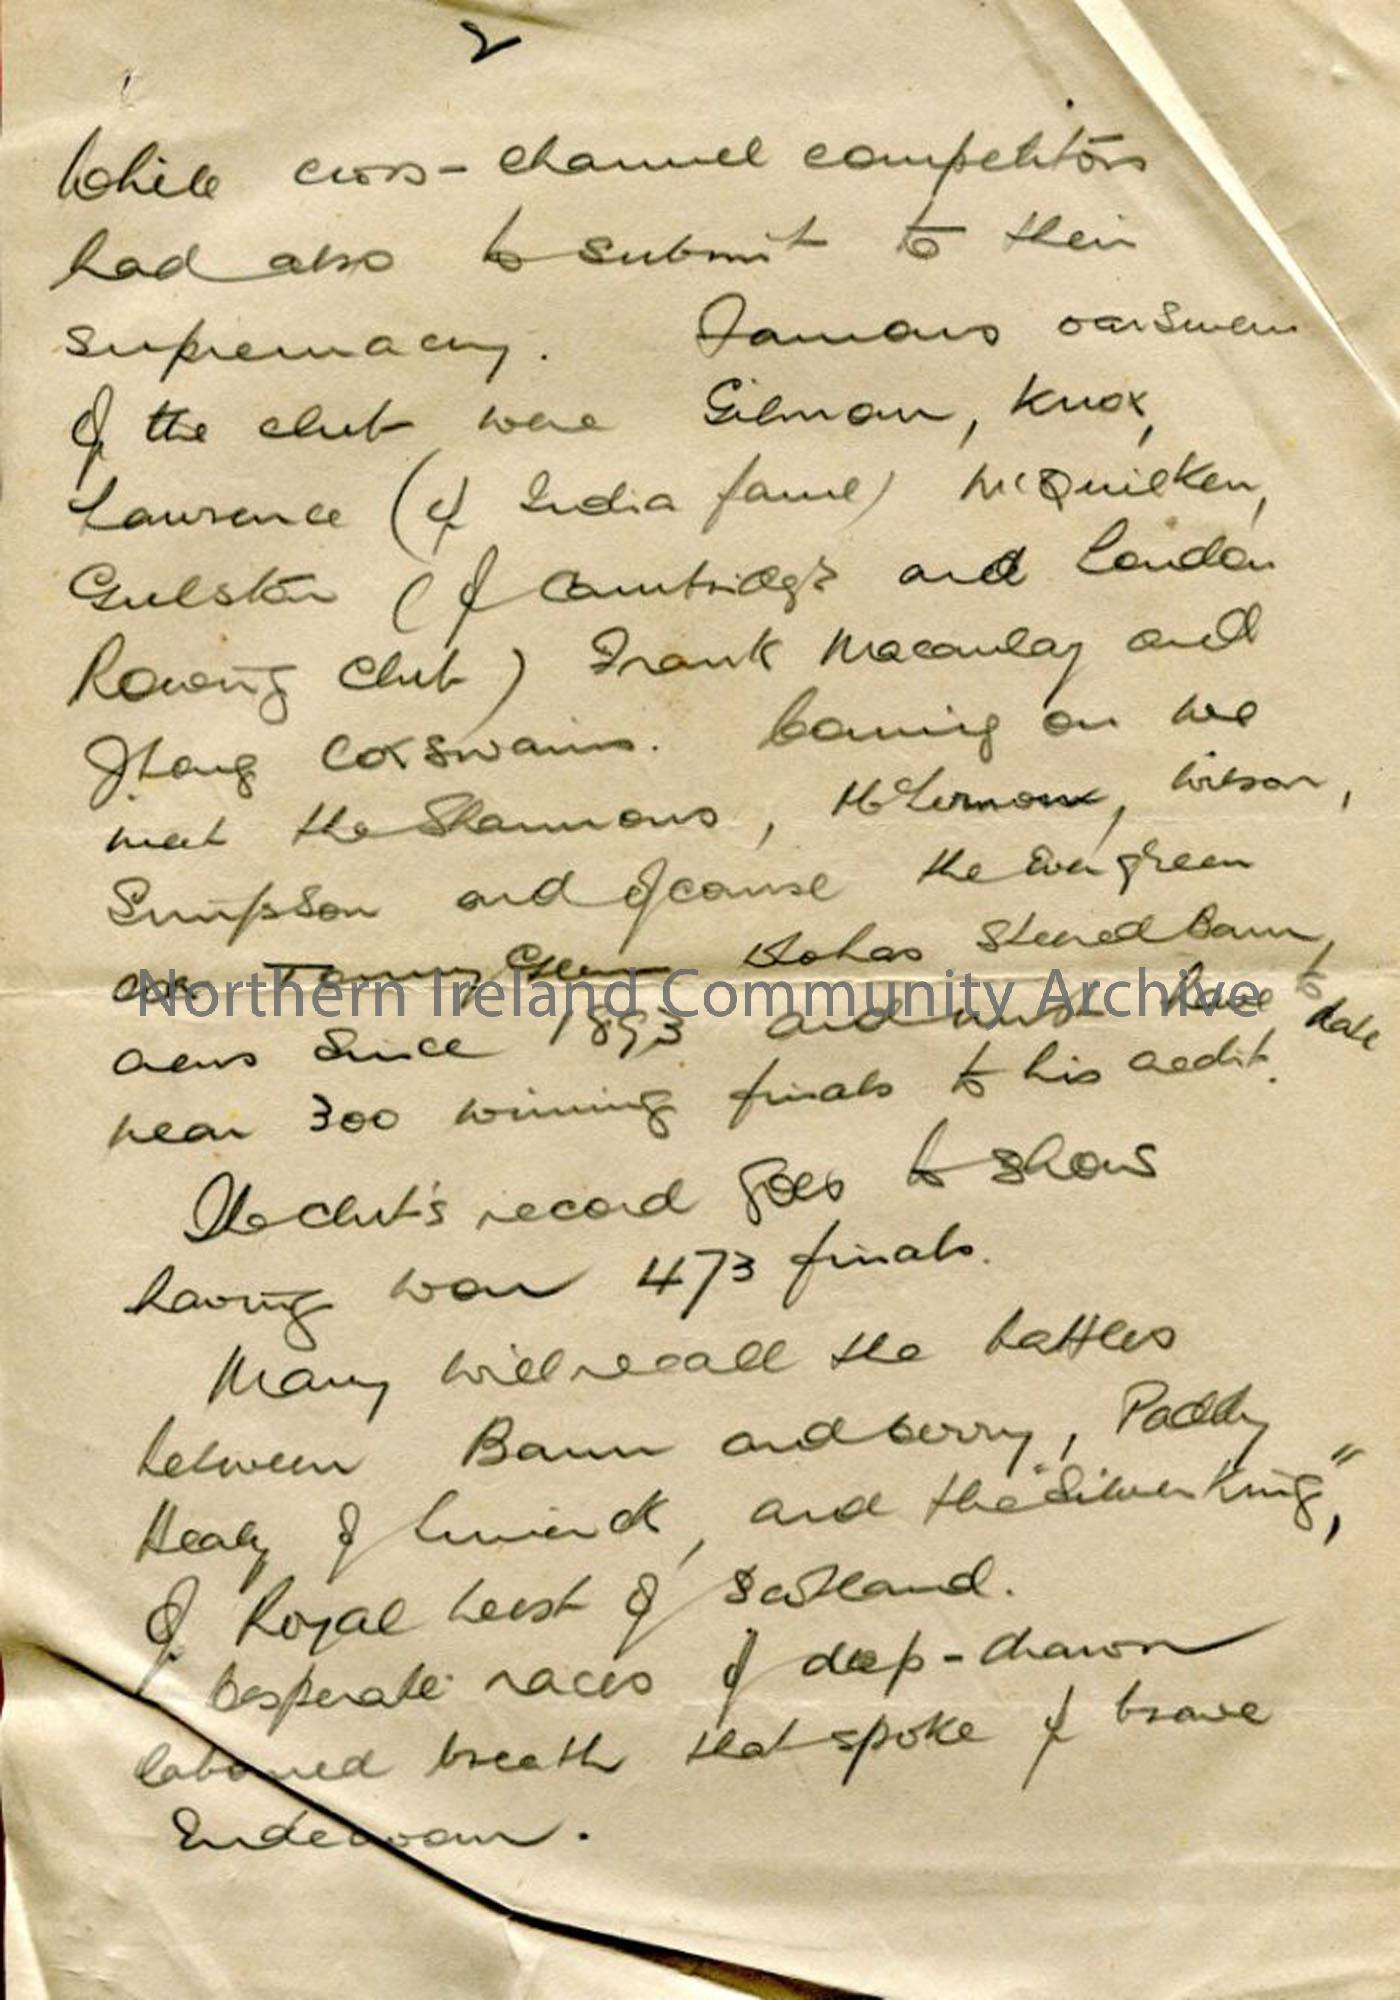 2
While cross-channel competitors
had also to submit to their
supremacy. Famous oarsmen
of the club were Gilmour, Knox,
Lawrence (of India fame) McQuilken,
Gulston (of Cambridge and London
Rowing Club) Frank Macaulay and
Haug coxswains. Coming on we
meet the Shannons, Wilson,
Simpson and of course the Evergreen
cox Tommy Glenn who has steered Bann,
crews since 1893 and must have to date
near 300 winning finals to his credit.
The club's record goes to show
having won 473 finals.
Many will recall the battles
between Bann and Derry, Paddy
Healy of Limerick, and the "Silver King",
of Royal West of Scotland.
Desperate races of deep-drawn
laboured breath that spoke of brave
Endeavour.
Northern Ireland Community Archive